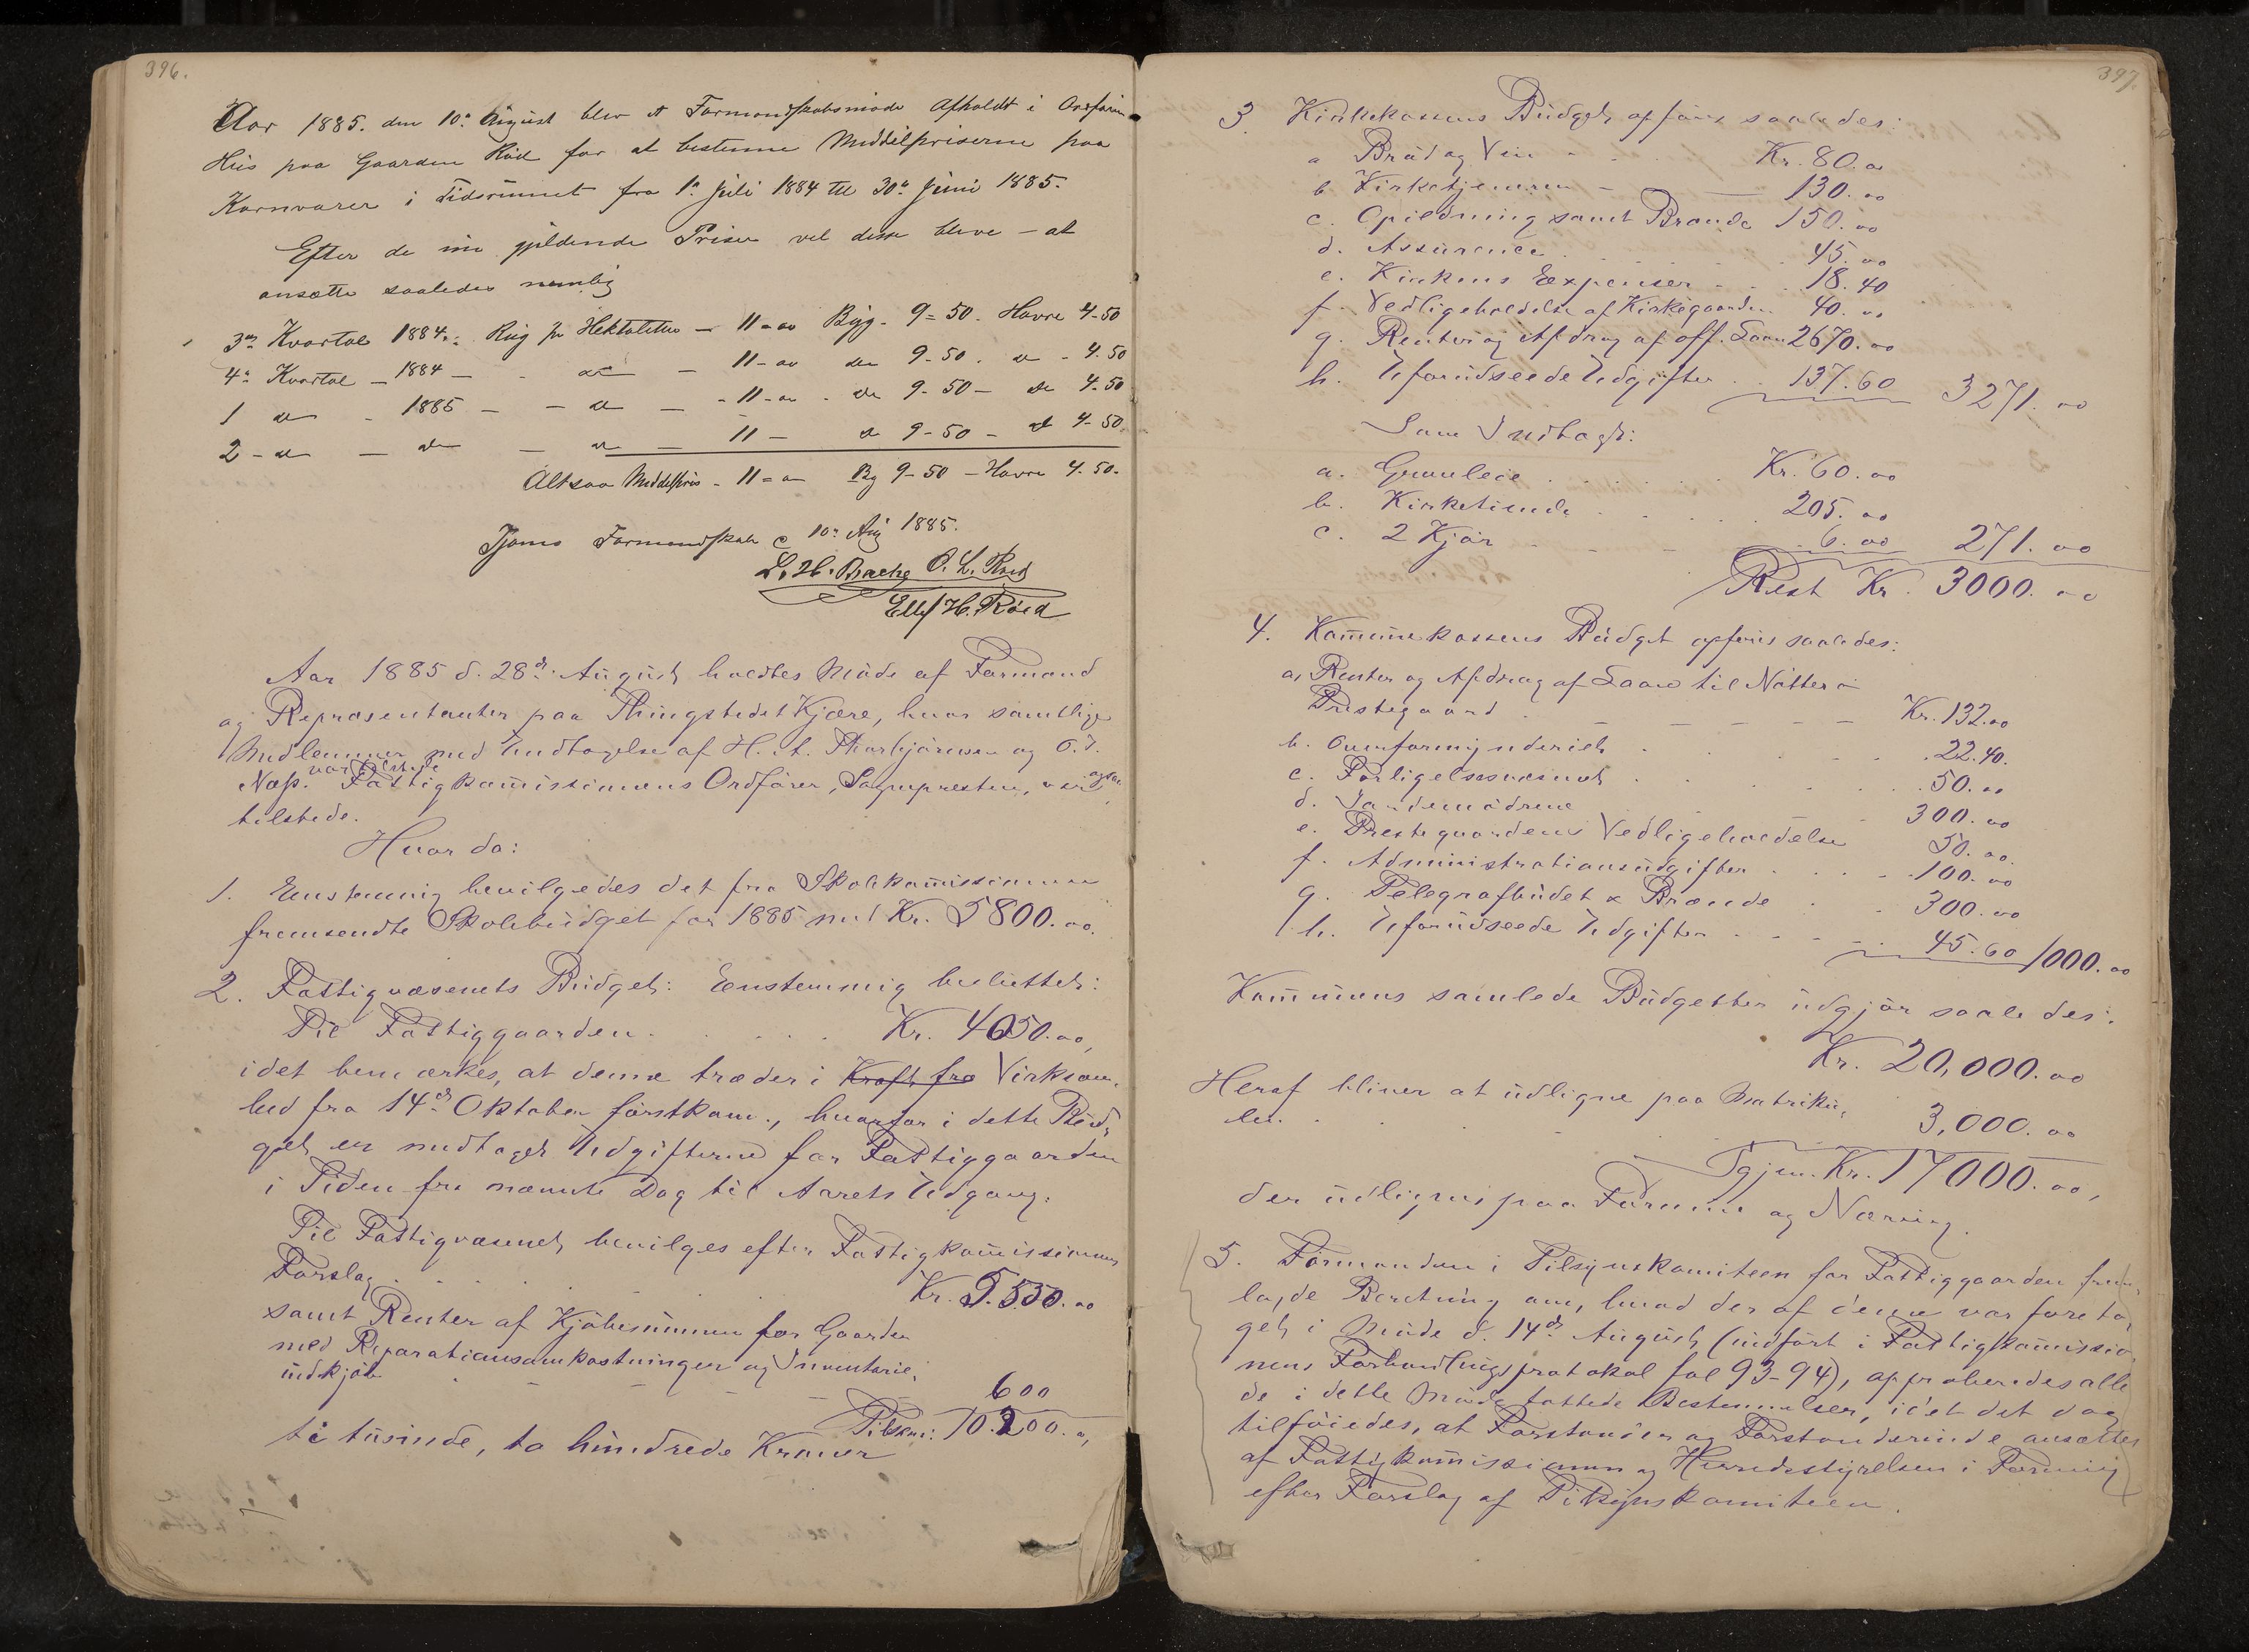 396.
Aar 1885. den 10de August blev et Formandskabsmöde Afholdt i Ordförer
Huus paa Gaarden Röd for at bestemme Middelpriserne paa
Kornvarer i Tidsrummet fra 1ste Juli 1884 til 30te Juni 1885.
Efter de nu gjeldende Priser vil disse blive at
ansætte saaledes nemlig
3die Kvartal 1884: Rug pr Hektoliter - 11=00 Byg. 9=50. Havre 4-50
4de Kvartal - 1884 - - do - 11-00 do 9-50. do - 4.50
1 do - 1885 - - do - 11-00 - do 9-50 - do 4-50
2 - do - do - do - 11 - do 9-50 - do 4-50.
Altsaa Middelpris - 11=00 Byg 9-50 - Havre 4.50.
Tjömö Formandskab 10de Aug 1885.
L. H. Bache O. L. Röed
Ellef H. Röed
Aar 1885 d. 28de August holdtes Möde af Formænd
og Repræsentanter paa Thingstedet Kjære, hvor samtlige
Medlemmer med Undtagelse af H. A. Thorbjörnsen og O. J.
Næss var tilstede. Fattigkommissionens Ordförer, Sognepresten, var ogsaa
tilstede.
Hvorda:
1. Enstemmig bevilgedes det fra Skolekommissionen
fremsendte Skolebudget for 1885 med Kr. 5800.00.
2. Fattigvæsenets Budget: Enstemmig besluttet:
Til Fattiggaarden . . . . Kr. 4050.00,
idet bemærkes, at denne træder i Kraft fra Virksom-
hed fra 14de Oktober förstkom., hvorfor i dette Bud-
get er medtaget Udgifterne for Fattiggaarden
i Tiden fra nævnte Dag til Aarets Udgang.
Til Fattigvæsenet bevilges efter Fattigkommissionens
Forslag . . . . . Kr. 5.550.00
samt Renter af Kjöbesummen for Gaarden
med Reparationsomkostninger og Inventarie-
indkjöb - - - - - 600
Tilsm: 10.200.00,
ti tusinde, to hundrede Kroner
397.
3. Kirkekassens Budget opföres saaledes:
a Bröd og Vin - - . Kr. 80.00
b. Kirketjeneren - 130.00
c. Opildning samt Brænde 150.00
d. Assurance . . . . . 45.00
e. Kirkens Expenser . . . 18.40
f. Vedligeholdelse af Kirkegaarden 40.00
g. Renter og Afdrag af off. Laan 2670.00
h. Uforudseede Udgifter . . 137.60 3271.00
Som Indtægt:
a. Grunleie . . . . . . Kr. 60.00
b. Kirketiende . . . . 205.00
c. 2 Kjör - - - . 6.00 271.00
Rest Kr. 3000.00
4. Kommunekassens Budget opföres saaledes:
a, Renter og Afdrag af Laan til Nötterö
Prestegaard . - - - - - Kr. 132.00
b. Overformynderiet . . . . 22.40.
c. Forligelsesvæsnet . . . . . 50.00
d. Jordemödrene . . . . 300.00
e. Prestegaardens Vedligeholdelse 50.00.
f. Administrationsudgifter . . . 100.00
g. Telegrafbudet & Brænde . . 300.00
h. Uforudseede Udgifter . - - - . 45.60 1000.00
Kommunens samlede Budgetter udgjör saaledes:
Kr. 20,000.00
Heraf bliver at udligne paa Matriku-
len. . . . . . 3,000.00
Igjen Kr. 17000.00,
der udlignes paa Formue og Næring.
5. Formanden i Tilsynskomiteen for Fattiggaarden frem-
lagde Beretning om, hvad der af denne var foreta-
get i Möde d. 14de August (indfört i Fattigkommissio-
nens Forhandlingsprotokol fol 93-94), approberedes alle
de i dette Möde fattede Bestemmelser, idet det dog
tilföiedes, at Forstander og Forstanderinde ansættes
af Fattigkommissionen og Herredsstyrelsen i Forening
efter Forslag af Tilsynskomiteen.